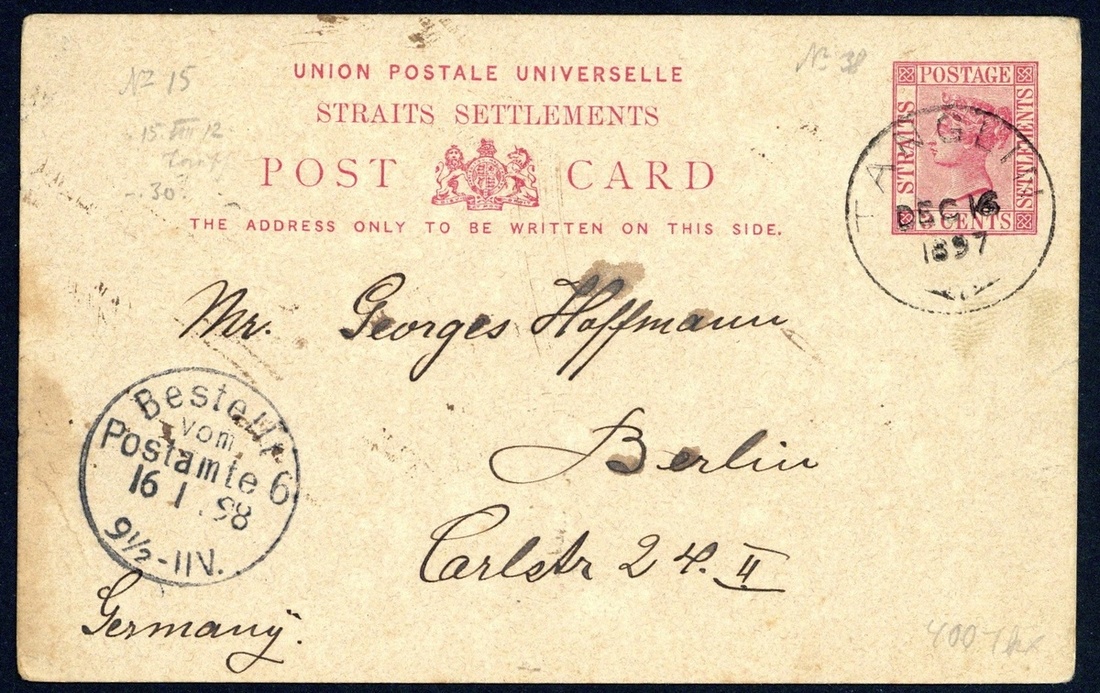 UNION POSTALE UNIVERSELLE
STRAITS SETTLEMENTS
POST CARD
THE ADDRESS ONLY TO BE WRITTEN ON THIS SIDE.
POSTAGE
STRAITS
SETTLEMENTS
CENTS
TANGLIN
DEC 16
1897
No 15
No 38
15 VIII 12
30.
Mr. Georges Hoffmann
Berlin
Carlstr 24. II
Germany.
Bestellt
vom
Postamte 6
16 1 .98
9½-11V.